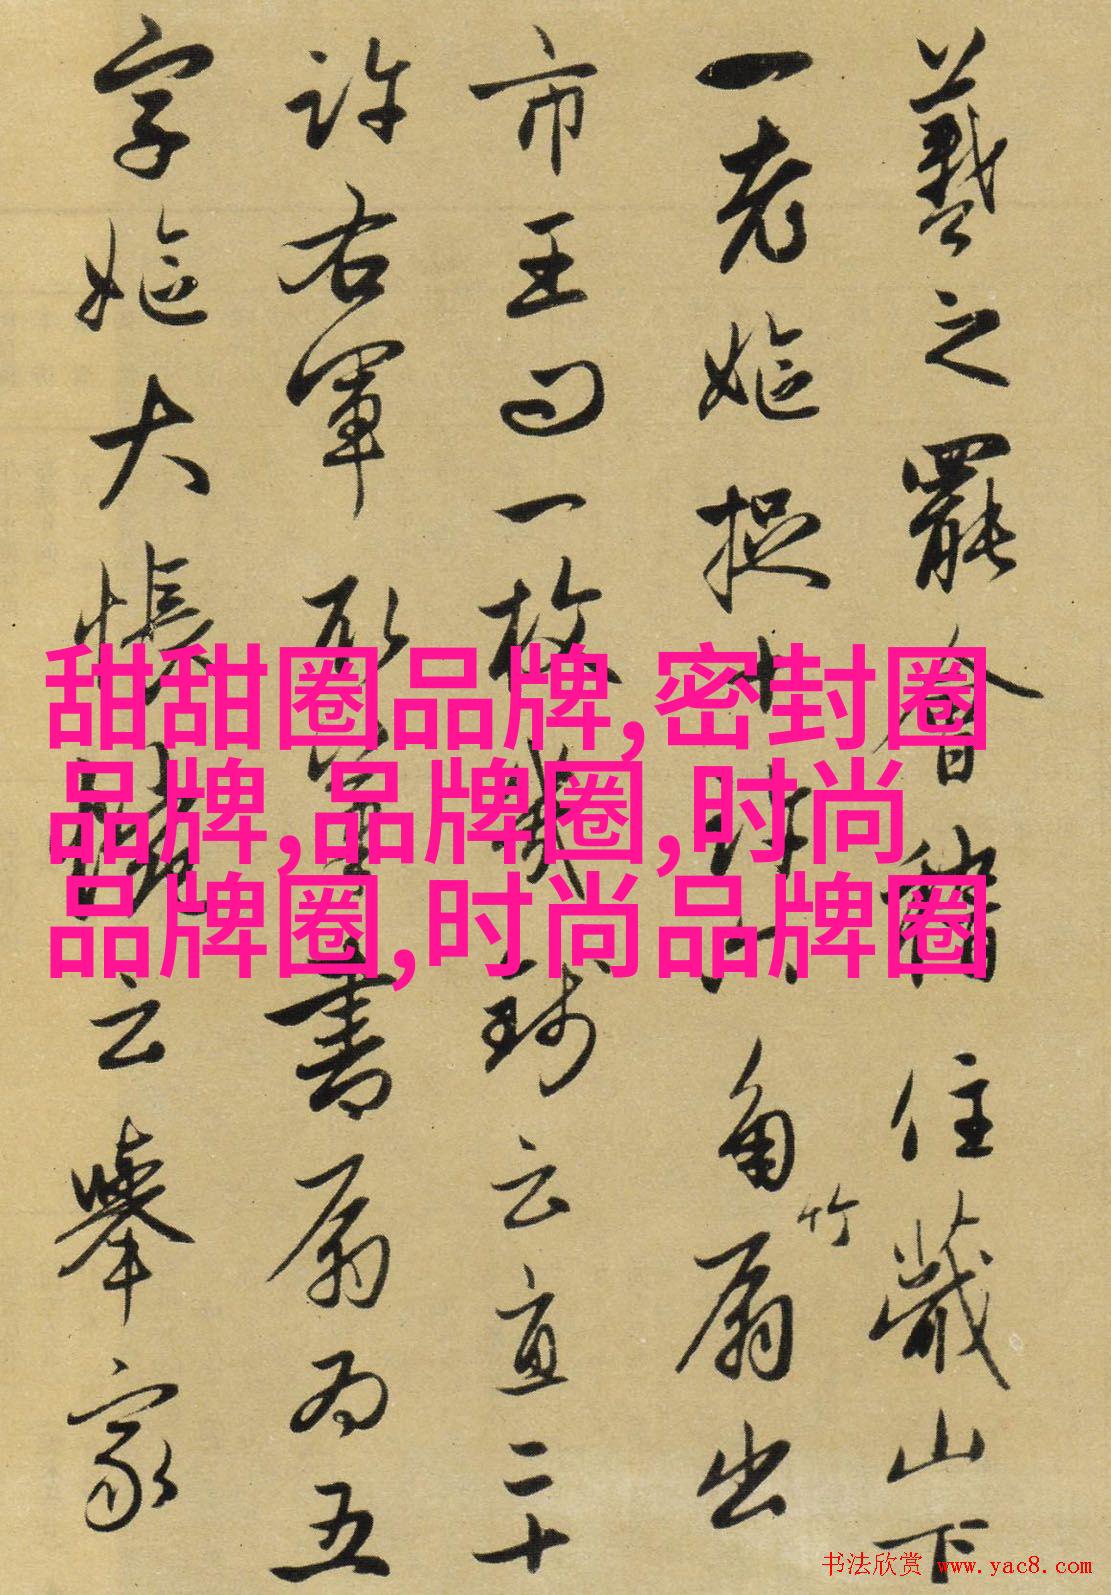 羲之罷會稽住蕺山下
一老嫗捉十許六角竹扇出
市王問一枚幾錢云直二十
許右軍取筆書扇扇為五
字嫗大悵惋云舉家
甜甜圈品牌,密封圈
品牌,品牌圈,时尚
品牌圈,时尚品牌圈
书法欣赏 www.yac8.com